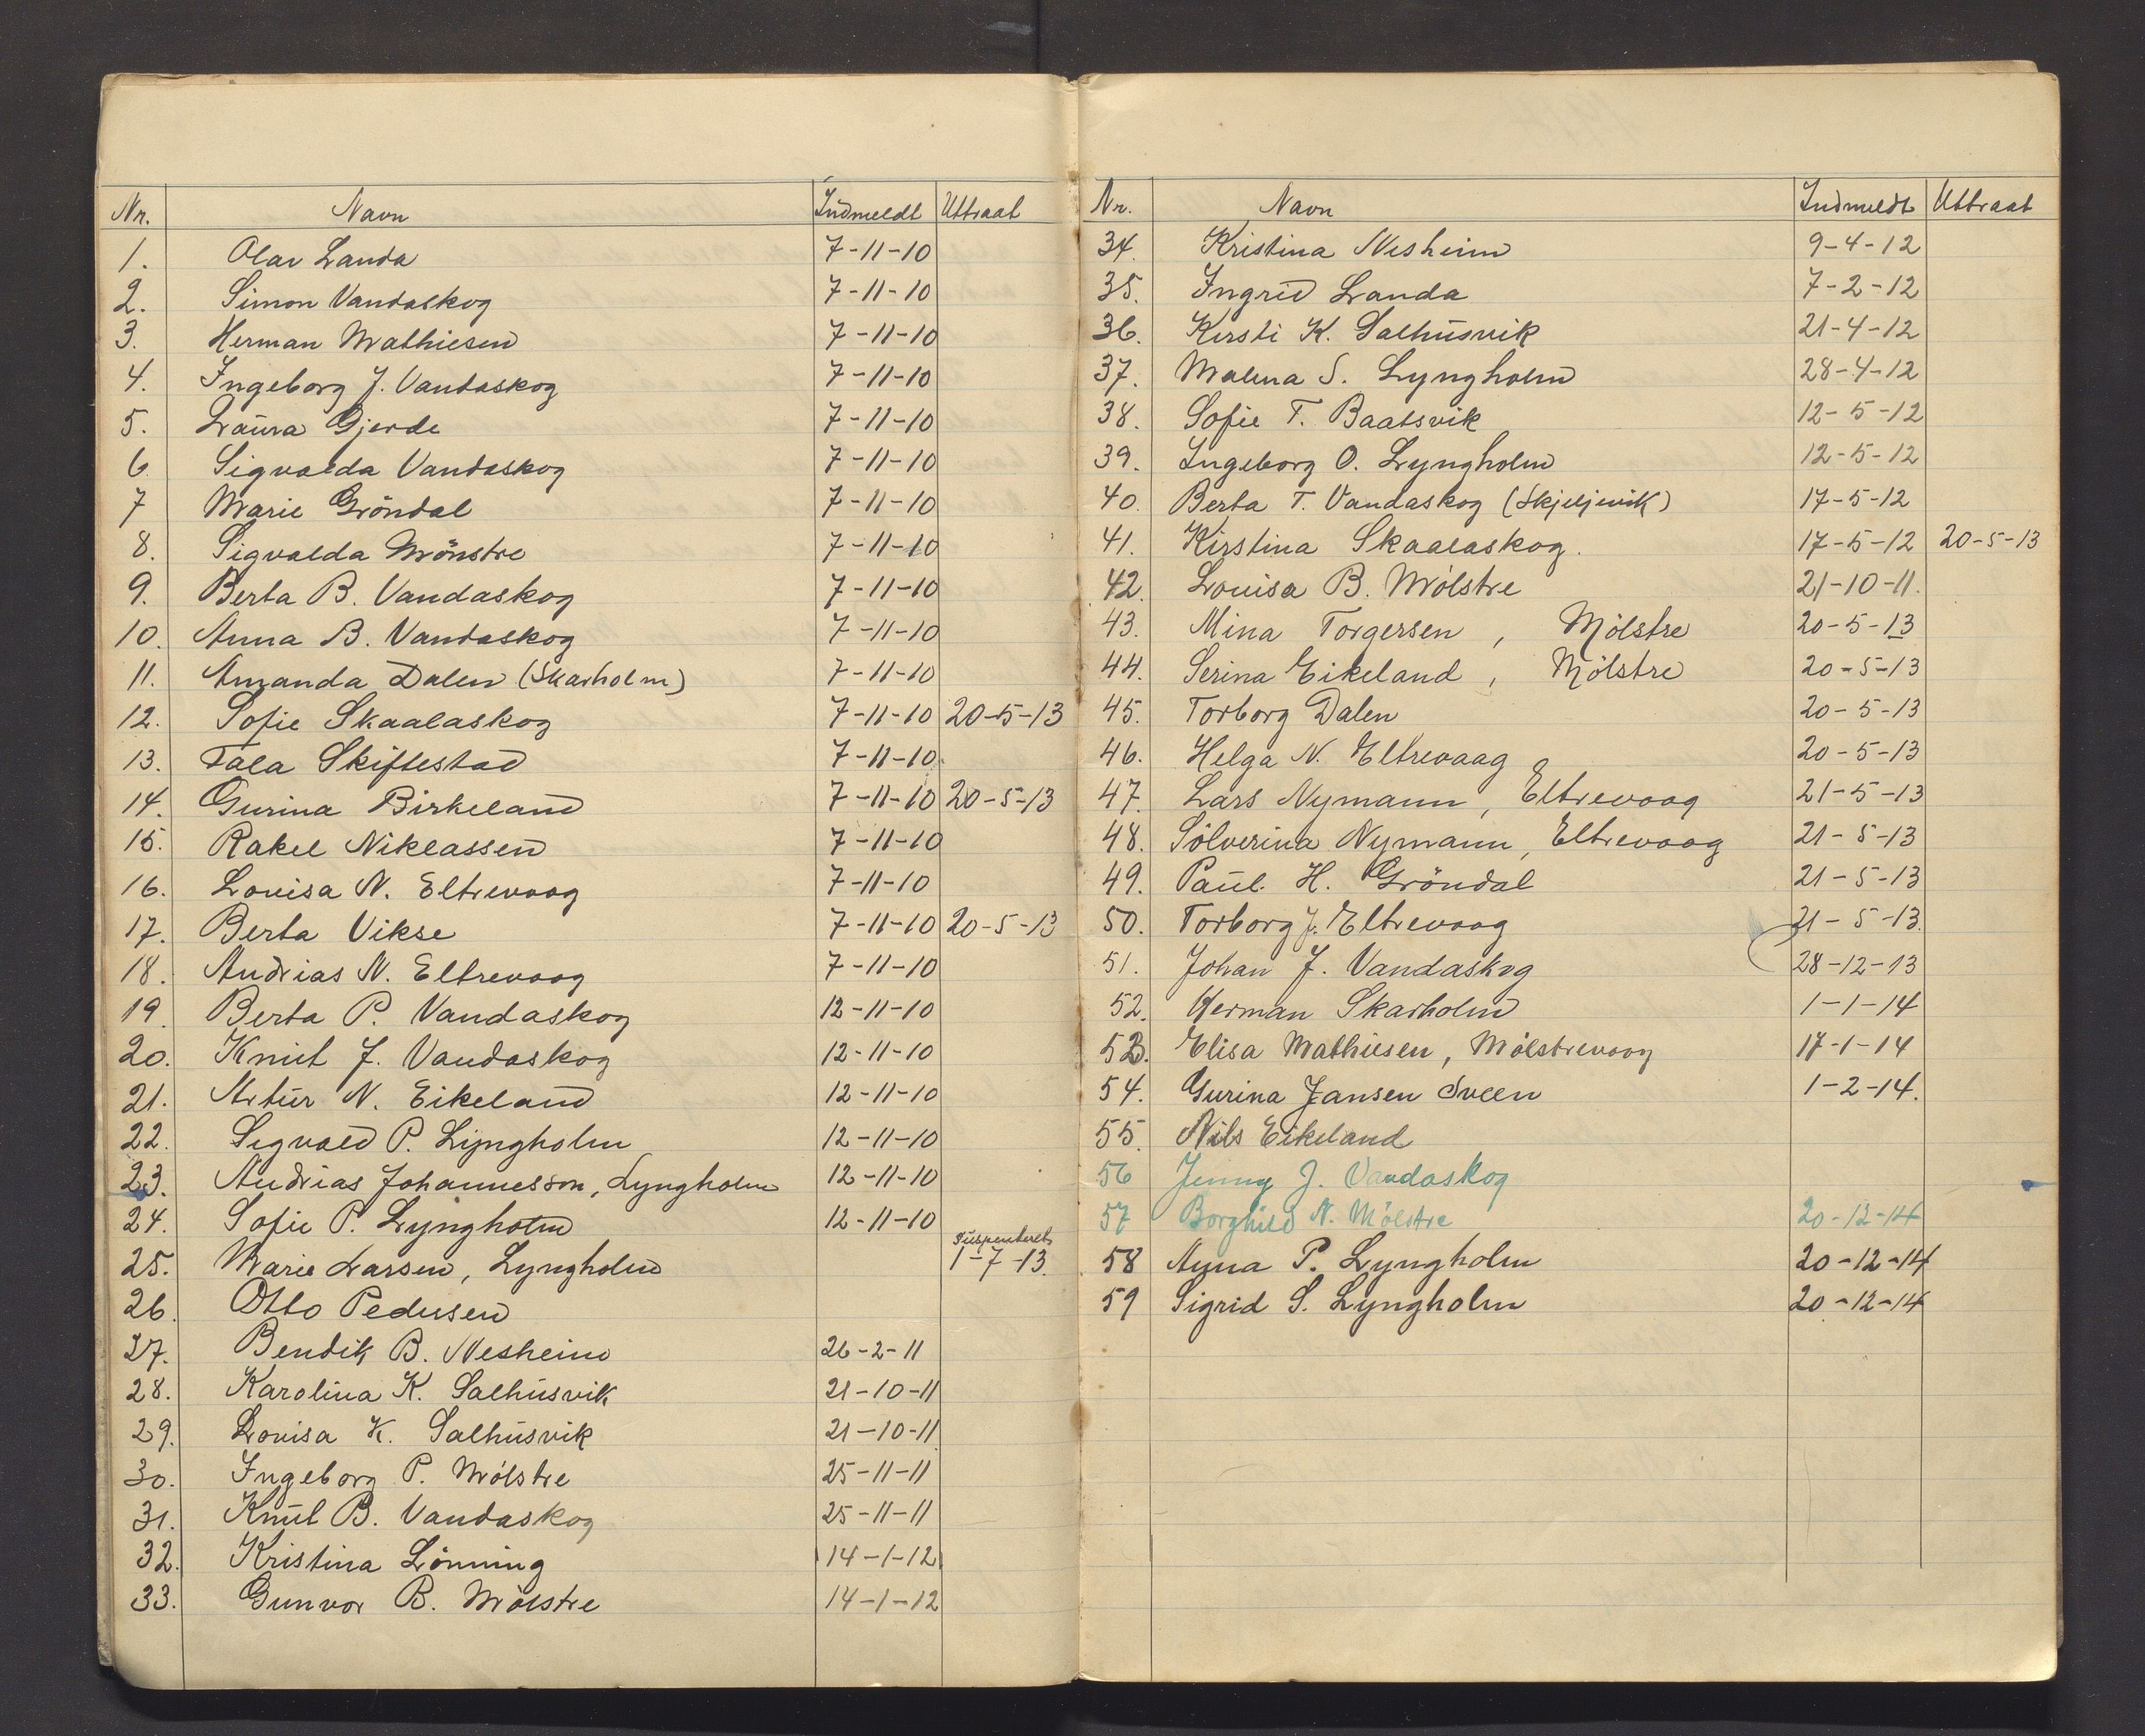 Nr. Navn Indmeldt Uttraat
1. Olav Landa 7-11-10
2. Simon Vandaskog 7-11-10
3. Herman Mathiesen 7-11-10
4. Ingeborg J. Vandaskog 7-11-10
5. Laura Gjerde 7-11-10
6 Sigvalda Vandaskog 7-11-10
7 Marie Gröndal 7-11-10
8. Sigvalda Mönstre 7-11-10
9. Berta B. Vandaskog 7-11-10
10. Anna B. Vandaskog 7-11-10
11. Amanda Dalen (Skarholm) 7-11-10
12. Sofie Skaalaskog 7-11-10 20-5-13
13. Tala Skiftestad 7-11-10
14. Gurina Birkeland 7-11-10 20-5-13
15. Rakel Niklassen 7-11-10
16. Lovisa N. Eltrevaag 7-11-10
17. Berta Vikse 7-11-10 20-5-13
18. Andrias N. Eltrevaag 7-11-10
19. Berta P. Vandaskog 12-11-10
20. Knut J. Vandaskog 12-11-10
21. Artur N. Eikeland 12-11-10
22. Sigvald P. Lyngholm 12-11-10
23. Andrias Johannesson, Lyngholm 12-11-10
24. Sofie P. Lyngholm 12-11-10
25. Marie Larsen, Lyngholm Suspenderet 1-7-13.
26. Otto Pedersen
27. Bendik B. Nesheim 26-2-11
28. Karolina K. Salhusvik 21-10-11
29. Lovisa K. Salhusvik 21-10-11
30. Ingeborg P. Mölstre 25-11-11
31. Knut B. Vandaskog 25-11-11
32. Kristina Lönning 14-1-12
33. Gunvor B. Mölstre 14-1-12
Nr. Navn Indmeldt Uttraat
34. Kristina Nesheim 9-4-12
35. Ingrid Landa 7-2-12
36. Kirsti K. Salhusvik 21-4-12
37. Malena S. Lyngholm 28-4-12
38. Sofie T. Baatsvik 12-5-12
39. Ingeborg O. Lyngholm 12-5-12
40. Berta T. Vandaskog (Skjeljevik) 17-5-12
41. Kirstina Skaalaskog. 17-5-12 20-5-13
42. Lovisa B. Mölstre 21-10-11.
43. Mina Torgersen, Mölstre 20-5-13
44. Serina Eikeland, Mölstre 20-5-13
45. Torborg Dalen 20-5-13
46. Helga N. Eltrevaag 20-5-13
47. Lars Nymann, Eltrevaag 21-5-13
48. Sölverina Nymann, Eltrevaag 21-5-13
49. Paul H. Gröndal 21-5-13
50. Torborg J. Eltrevaag 21-5-13.
51. Johan J. Vandaskog 28-12-13
52. Herman Skarholm 1-1-14
53. Elisa Mathiesen, Mölstrevaag 17-1-14
54. Gurina Jansen Sveen 1-2-14.
55. Nils Eikeland
56 Jenny J. Vandaskog
57 Borghild N. Mölstre 20-12-14
58 Anna P. Lyngholm 20-12-14
59 Sigrid S. Lyngholm 20-12-14